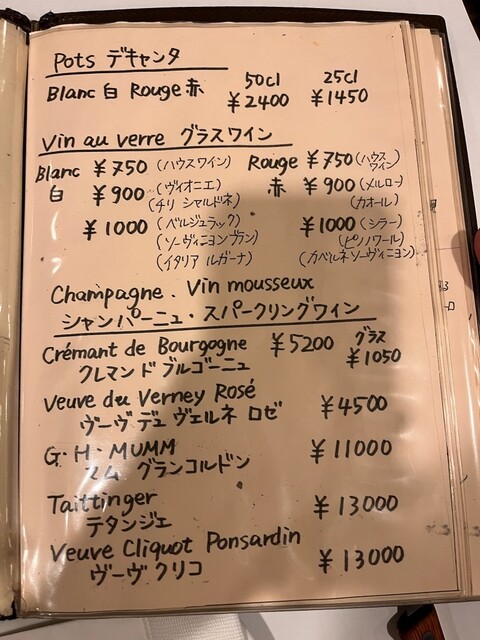 Pots デキャンタ
50cl 25cl
Blanc 白 Rouge 赤 ¥2400 ¥1450
Vin au verre グラスワイン
Blanc ¥750 (ハウスワイン) Rouge ¥750 (ハウスワイン)
白 ¥900 (ヴィオニエ) 赤 ¥900 (メルロー)
(チリ シャルドネ) (カオール)
¥1000 (ベルジュラック) ¥1000 (シラー)
(ソーヴィニヨンブラン) (ピノノワール)
(イタリア ルガーナ) (カベルネソーヴィニヨン)
Champagne . Vin mousseux
シャンパーニュ・スパークリングワイン
Crémant de Bourgogne ¥5200 グラス
クレマンドブルゴーニュ ¥1050
Veuve du Verney Rosé
ヴーヴ デュ ヴェルネ ロゼ ¥4500
G・H・MUMM ¥11000
マム グランコルドン
Taittinger ¥13000
テタンジェ
Veuve Cliquot Ponsardin
ヴーヴ クリコ ¥13000